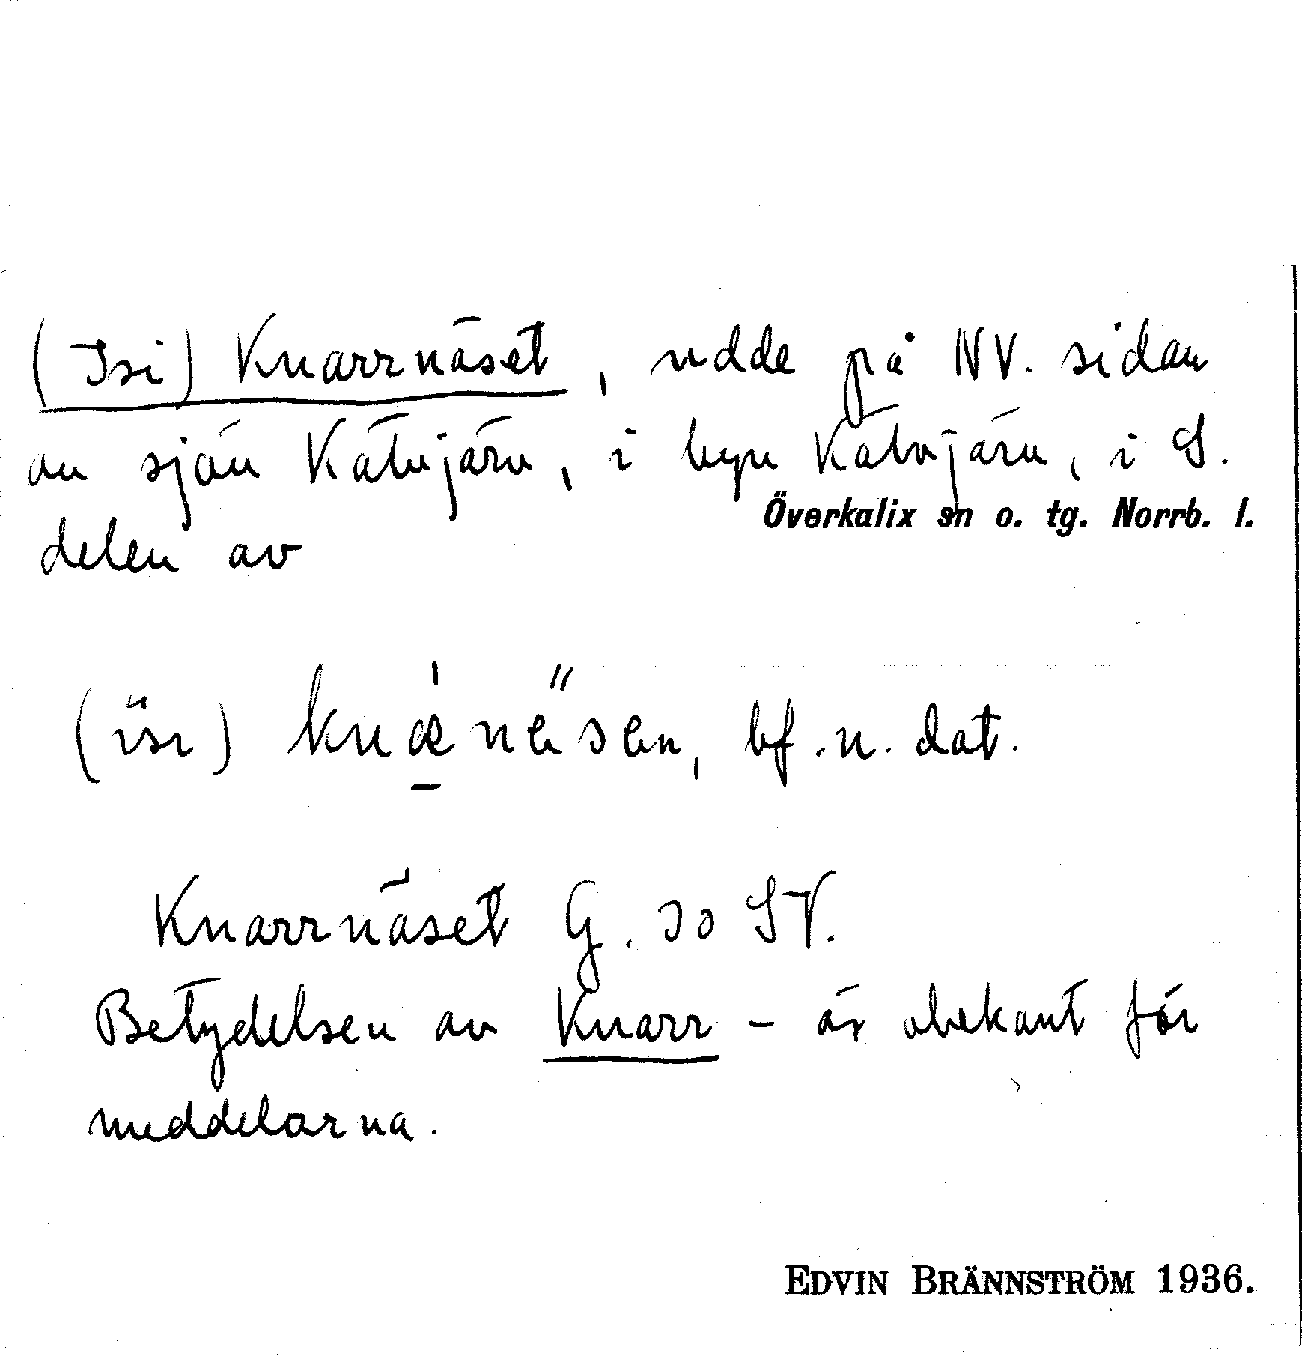 (Isi) Knarrnäset, udde på NV. sidan
av sjön Kätujärv, i byn Kätujärv, i S.
Överkalix sn o. tg. Norrb. l.
delen av
(isi) knænäsen, bf. n. dat.
Knarrnäset G. 30 SV.
Betydelsen av Knarr - är obekant för
meddelarna.
EDVIN BRÄNNSTRÖM 1936.